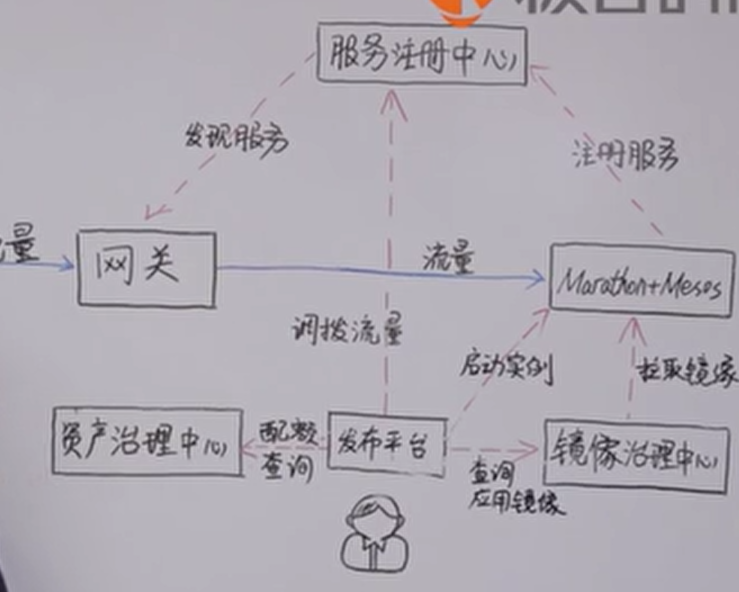 服务注册中心
发现服务
注册服务
流量
网关
流量
Marathon+Mesos
调拨流量
启动实例
拉取镜像
资产治理中心
配额
查询
发布平台
查询
应用镜像
镜像治理中心